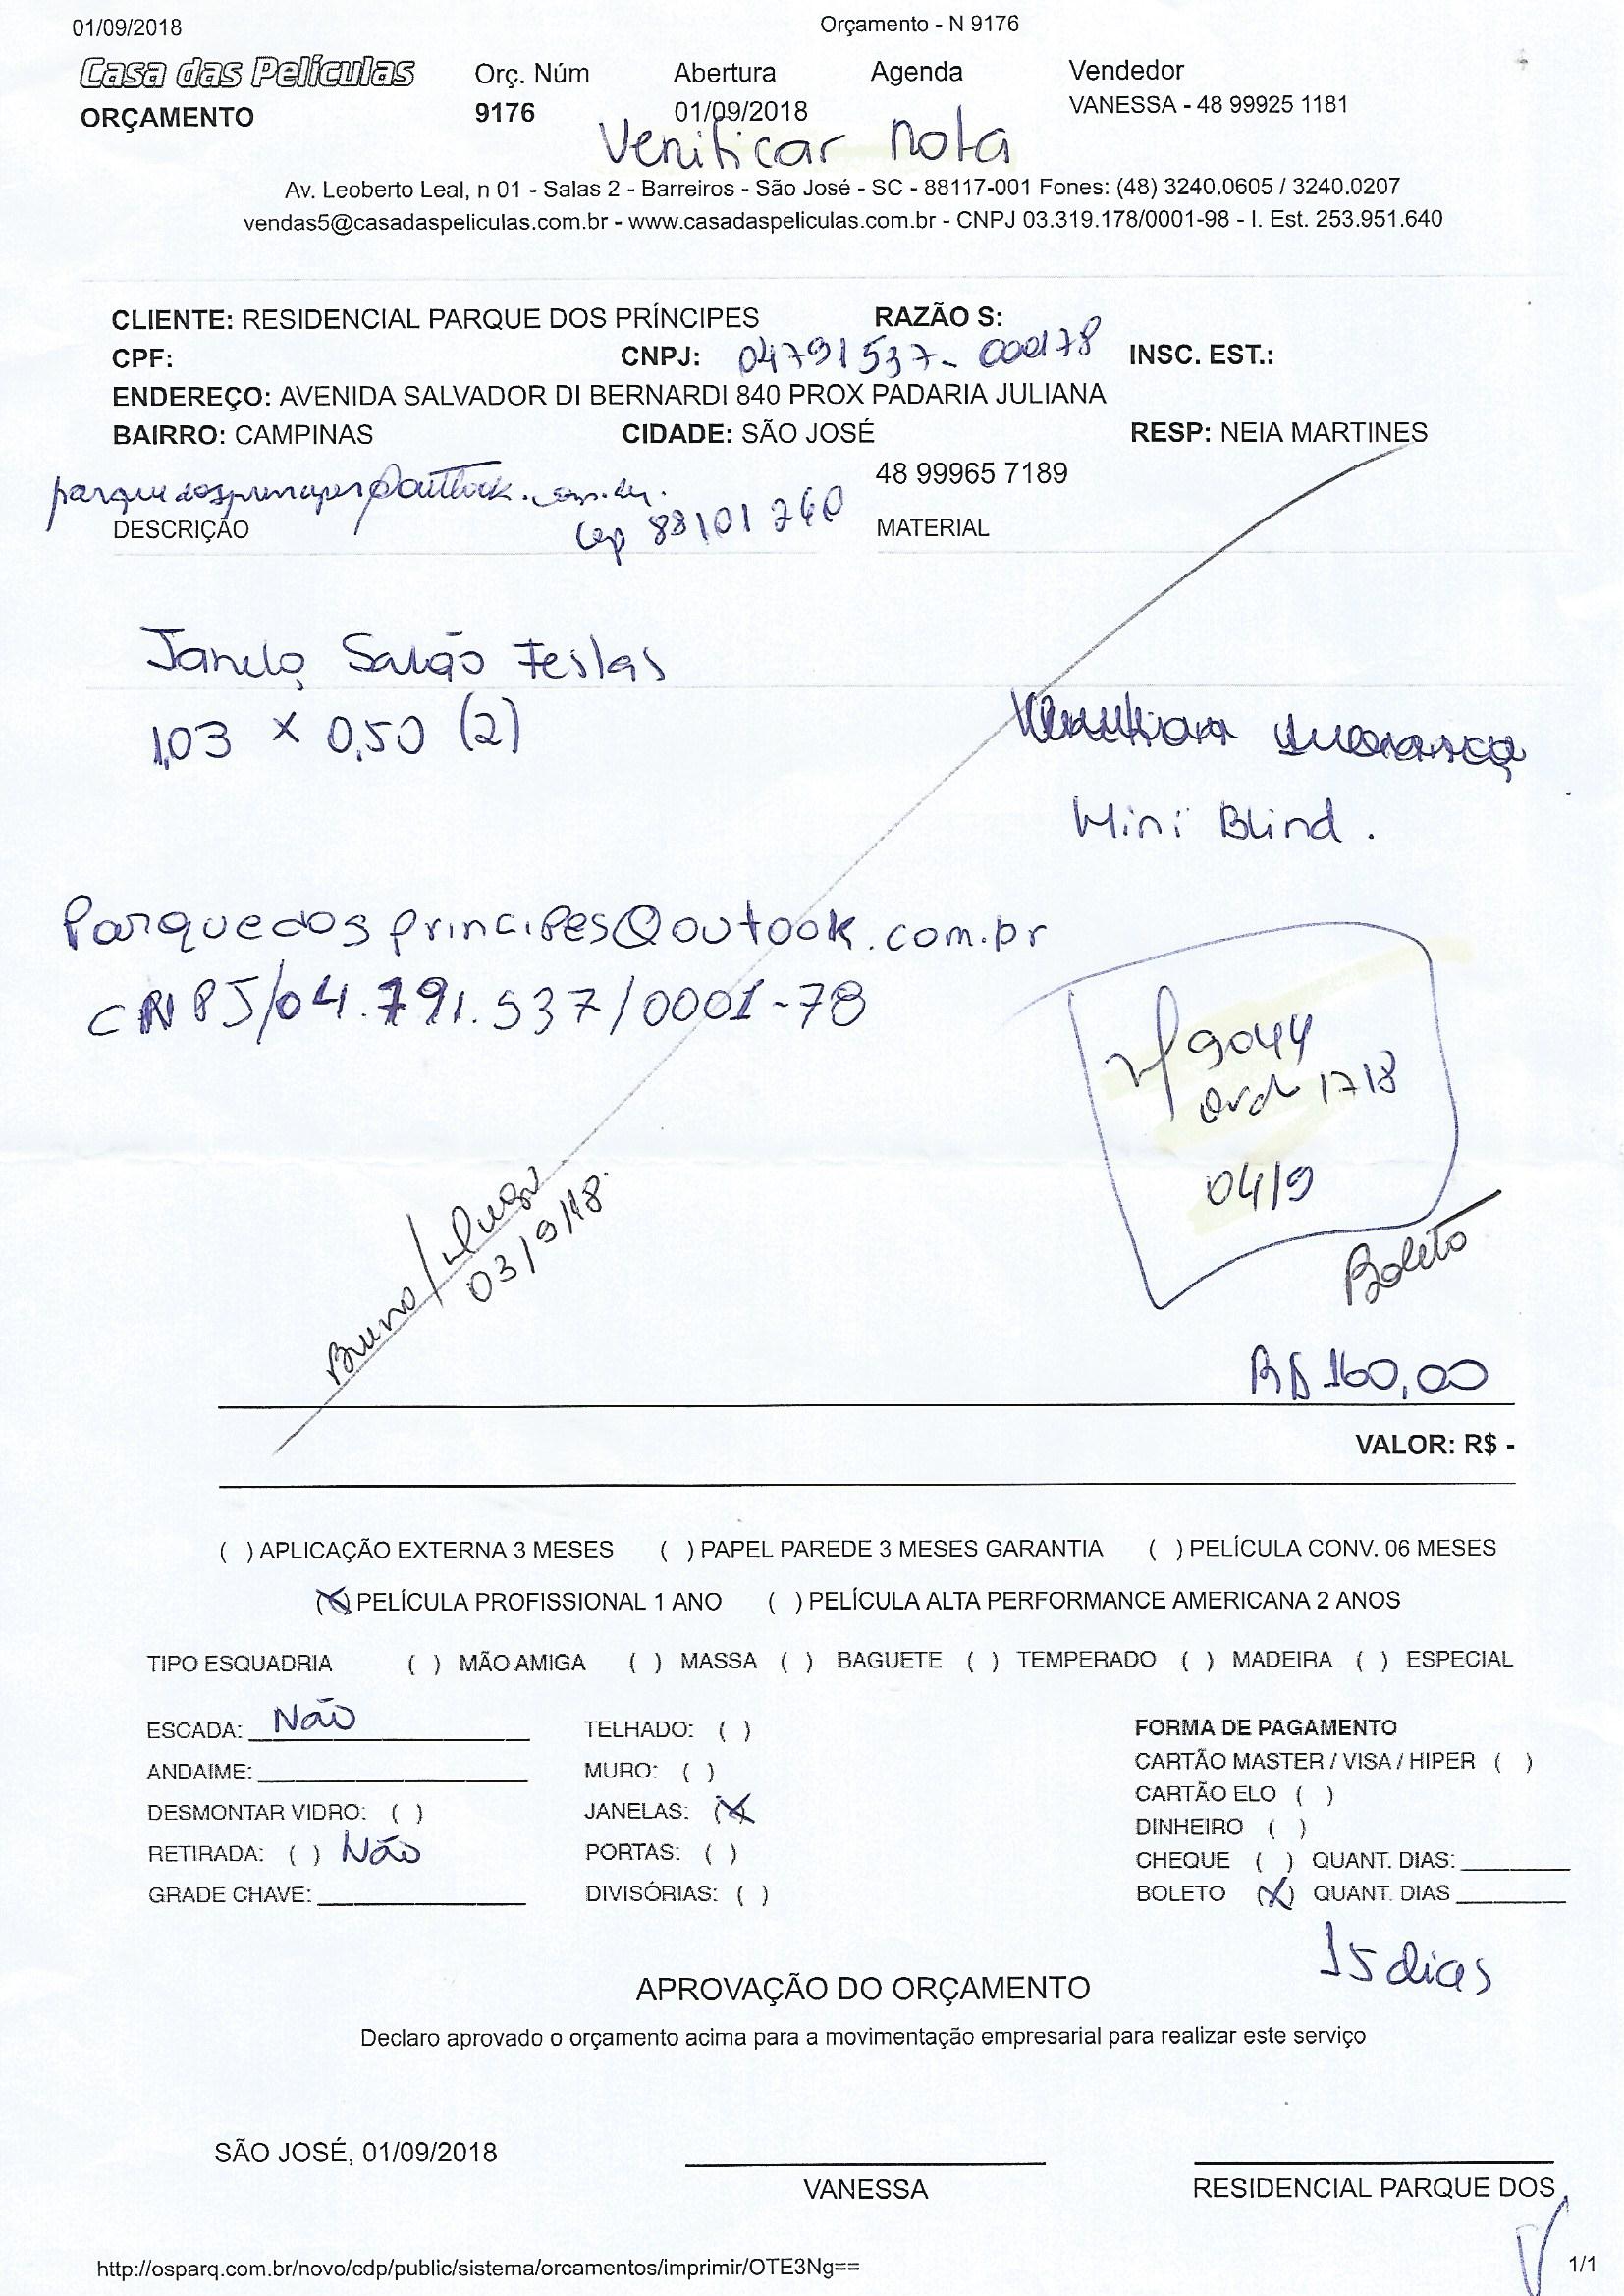 01/09/2018 Orçamento - N 9176
Casa das Películas Orç. Núm Abertura Agenda Vendedor
ORÇAMENTO 9176 01/09/2018 VANESSA - 48 99925 1181
Verificar nota
Av. Leoberto Leal, n 01 - Salas 2 - Barreiros - São José - SC - 88117-001 Fones: (48) 3240.0605 / 3240.0207
vendas5@casadaspeliculas.com.br - www.casadaspeliculas.com.br - CNPJ 03.319.178/0001-98 - I. Est. 253.951.640
CLIENTE: RESIDENCIAL PARQUE DOS PRÍNCIPES RAZÃO S:
CPF: CNPJ: 04791537-000178 INSC. EST.:
ENDEREÇO: AVENIDA SALVADOR DI BERNARDI 840 PROX PADARIA JULIANA
BAIRRO: CAMPINAS CIDADE: SÃO JOSÉ RESP: NEIA MARTINES
48 99965 7189
Cep 88101 260
DESCRIÇÃO MATERIAL
Janela Salão Festas
1,03 x 0,50 (2)
Mini Blind.
Parquedosprincipes@outook.com.br
CNPJ/04.791.537/0001-78
nf 9044
ord 1718
04/9
Boleto
Bruno/
03/9/18.
R$ 160,00
VALOR: R$ -
( ) APLICAÇÃO EXTERNA 3 MESES ( ) PAPEL PAREDE 3 MESES GARANTIA ( ) PELÍCULA CONV. 06 MESES
(X) PELÍCULA PROFISSIONAL 1 ANO ( ) PELÍCULA ALTA PERFORMANCE AMERICANA 2 ANOS
TIPO ESQUADRIA ( ) MÃO AMIGA ( ) MASSA ( ) BAGUETE ( ) TEMPERADO ( ) MADEIRA ( ) ESPECIAL
ESCADA: Não TELHADO: ( ) FORMA DE PAGAMENTO
ANDAIME: MURO: ( ) CARTÃO MASTER / VISA / HIPER ( )
DESMONTAR VIDRO: ( ) JANELAS: (X) CARTÃO ELO ( )
DINHEIRO ( )
RETIRADA: ( ) Não PORTAS: ( ) CHEQUE ( ) QUANT. DIAS:
GRADE CHAVE: DIVISÓRIAS: ( ) BOLETO (X) QUANT. DIAS
15 dias
APROVAÇÃO DO ORÇAMENTO
Declaro aprovado o orçamento acima para a movimentação empresarial para realizar este serviço
SÃO JOSÉ, 01/09/2018
VANESSA RESIDENCIAL PARQUE DOS
http://osparq.com.br/novo/cdp/public/sistema/orcamentos/imprimir/OTE3Ng== 1/1